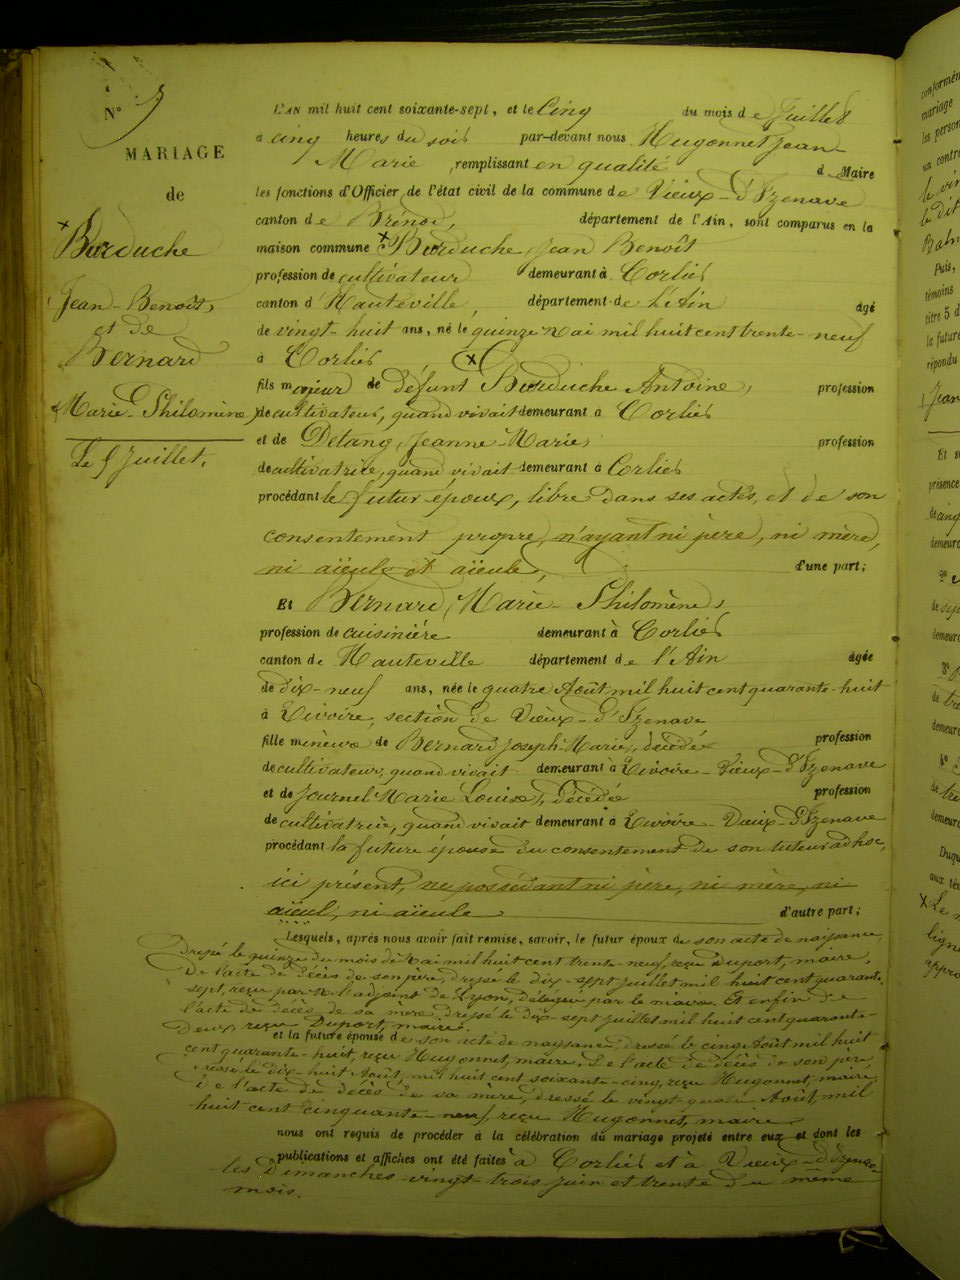 N° 5
MARIAGE
de
× Burduche
Jean-Benoît,
et de
Bernard
Marie-Philomène
Le 5 Juillet.
L'AN mil huit cent soixante-sept, et le Cinq du mois de Juillet
à cinq heures du soir par-devant nous Hugonnet Jean-
Marie, remplissant en qualité de Maire
les fonctions d'Officier de l'état civil de la commune de Vieux-d'Izenave
canton de Brénod, département de l'Ain, sont comparus en la
maison commune × Burduche Jean Benoît
profession de cultivateur demeurant à Corlier
canton d'Hauteville, département de l'Ain âgé
de vingt-huit ans, né le quinze Mai mil huit cent trente-neuf
à Corlier ×
fils majeur de défunt Burduche Antoine, profession
de cultivateur, quand vivait demeurant à Corlier
et de Détang, Jeanne-Marie, profession
de cultivatrice, quand vivait demeurant à Corlier
procédant le futur époux, libre dans ses actes, et de son
consentement propre, n'ayant ni père, ni mère,
ni aïeuls et aïeule, d'une part;
Et Bernard, Marie-Philomène,
profession de cuisinière demeurant à Corlier
canton de Hauteville département de l'Ain âgée
de dix-neuf ans, née le quatre Août mil huit cent quarante-huit
à Livoire, section de Vieux-d'Izenave
fille mineure de Bernard Joseph-Marie, décédé profession
de cultivateur, quand vivait demeurant à Livoire-Vieux-d'Izenave
et de Journel Marie Louise, décédée profession
de cultivatrice, quand vivait demeurant à Livoire-Vieux-d'Izenave
procédant la future épouse du consentement de son tuteur ad hoc,
ici présent, ne possédant ni père, ni mère, ni
aïeul, ni aïeule d'autre part;
Lesquels, après nous avoir fait remise, savoir, le futur époux de son acte de naissance,
dressé le quinze du mois de Mai mil huit cent trente-neuf, reçu Duport, maire,
De l'acte de décès de son père, dressé le dix-sept juillet mil huit cent quarante-
sept, reçu par M. l'adjoint de Lyon, délégué par le maire. Et enfin de
l'acte de décès de sa mère, dressé le dix-sept juillet mil huit cent quarante-
deux, reçu Duport, maire.
et la future épouse de son acte de naissance, dressé le cinq Août mil huit
cent quarante-huit, reçu Hugonnet, maire, De l'acte de décès de son père
dressé le dix-huit Août, mil huit cent soixante-cinq, reçu Hugonnet, maire,
de l'acte de décès de sa mère, dressé le vingt-quatre Août, mil
huit cent cinquante-neuf, reçu Hugonnet, maire
nous ont requis de procéder à la célébration du mariage projeté entre eux et dont les
publications et affiches ont été faites à Corlier et à Vieux-d'Izenave
les Dimanches vingt-trois juin et trente du même
mois.